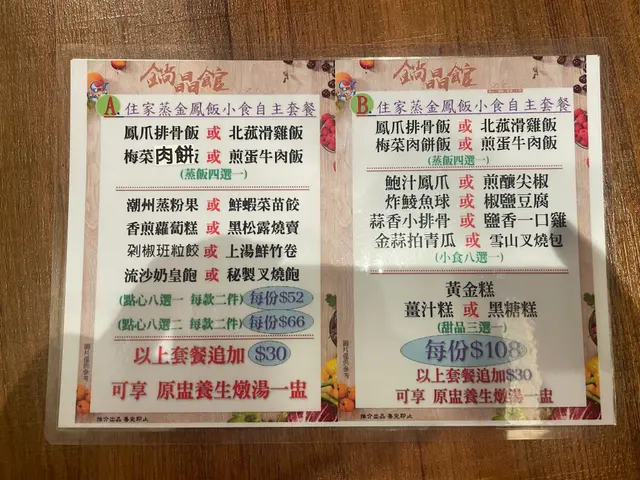 鍋晶館
A 住家蒸金鳳飯小食自主套餐
鳳爪排骨飯 或 北菰滑雞飯
梅菜肉餅飯 或 煎蛋牛肉飯
(蒸飯四選一)
潮州蒸粉果 或 鮮蝦菜苗餃
香煎蘿蔔糕 或 黑松露燒賣
剁椒班粒餃 或 上湯鮮竹卷
流沙奶皇飽 或 秘製叉燒飽
(點心八選一 每款二件) 每份$52
(點心八選二 每款二件) 每份$66
以上套餐追加 $30
可享 原盅養生燉湯一盅
圖片僅供參考
推介出品 善見即止
鍋晶館
B 住家蒸金鳳飯小食自主套餐
鳳爪排骨飯 或 北菰滑雞飯
梅菜肉餅飯 或 煎蛋牛肉飯
(蒸飯四選一)
鮑汁鳳爪 或 煎釀尖椒
炸鯪魚球 或 椒鹽豆腐
蒜香小排骨 或 鹽香一口雞
金蒜拍青瓜 或 雪山叉燒包
(小食八選一)
黃金糕
薑汁糕 或 黑糖糕
(甜品三選一)
每份$108
以上套餐追加$30
可享 原盅養生燉湯一盅
圖片僅供參考